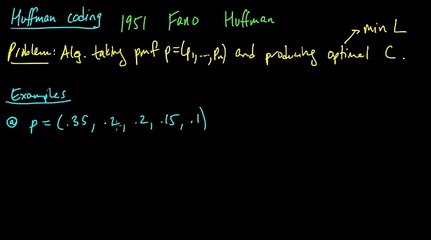 Huffman coding 1951 Fano Huffman
min L
Problem: Alg. taking pmf p=(p₁,...,pₙ) and producing optimal C.
Examples
ⓐ p = (.35, .2, .2, .15, .1)